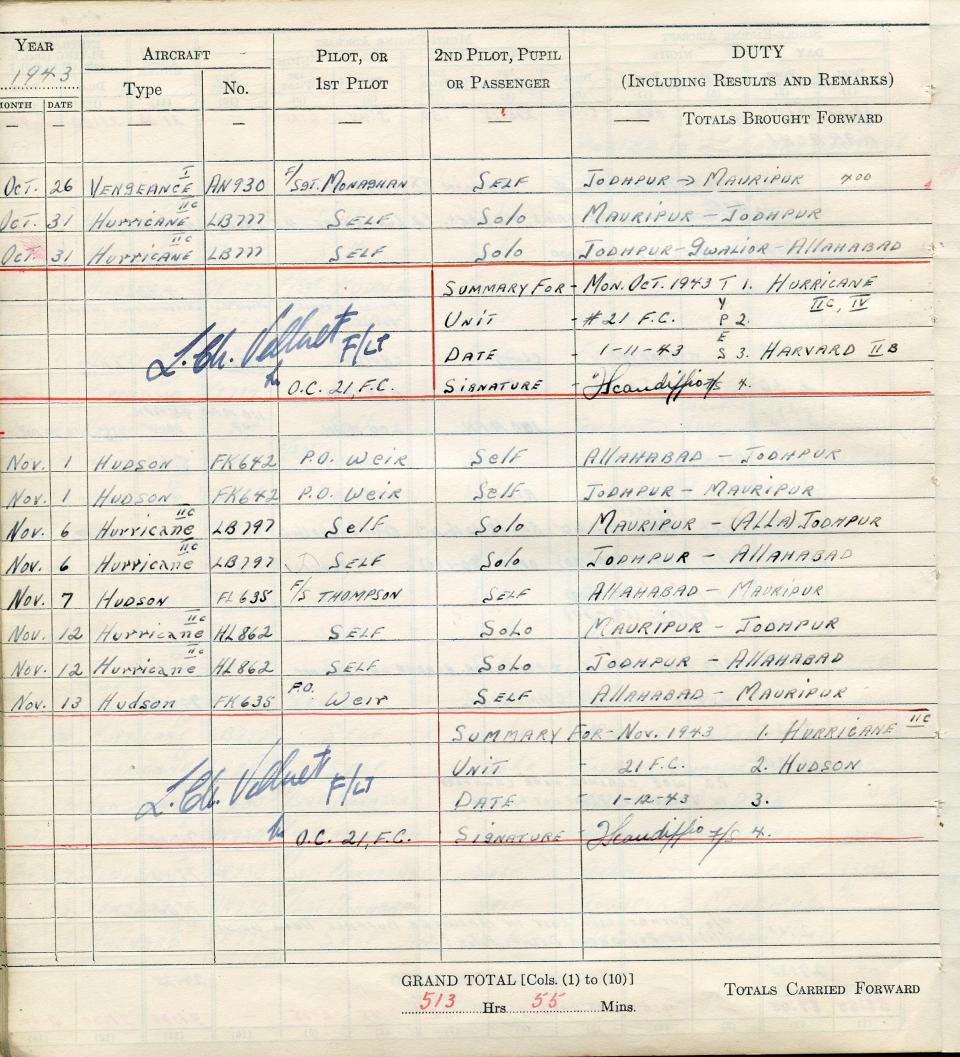 YEAR AIRCRAFT PILOT, OR 2ND PILOT, PUPIL DUTY
1943 Type No. 1ST PILOT OR PASSENGER (INCLUDING RESULTS AND REMARKS)
MONTH DATE
— — — — — — —— TOTALS BROUGHT FORWARD
OCT. 26 VENGEANCE I AN930 F/SGT. MONAGHAN SELF JODHPUR → MAURIPUR 400
OCT. 31 HURRICANE IIC LB777 SELF SOLO MAURIPUR - JODHPUR
OCT. 31 HURRICANE IIC LB777 SELF SOLO JODHPUR - GWALIOR - ALLAHABAD
SUMMARY FOR - MON. OCT. 1943 TYPES 1. HURRICANE
UNIT - #21 F.C. 2. IIC, IV
L. Ch. F/LT DATE - 1-11-43 3. HARVARD IIB
O.C. 21, F.C. SIGNATURE - Scandiffio F/S 4.
NOV. 1 HUDSON FK642 P.O. WEIR SELF ALLAHABAD - JODHPUR
NOV. 1 HUDSON FK642 P.O. WEIR SELF JODHPUR - MAURIPUR
NOV. 6 HURRICANE IIC LB797 SELF SOLO MAURIPUR - (ALLA) JODHPUR
NOV. 6 HURRICANE IIC LB797 SELF SOLO JODHPUR - ALLAHABAD
NOV. 7 HUDSON FL635 F/S THOMPSON SELF ALLAHABAD - MAURIPUR
NOV. 12 HURRICANE IIC HL862 SELF SOLO MAURIPUR - JODHPUR
NOV. 12 HURRICANE IIC HL862 SELF SOLO JODHPUR - ALLAHABAD
NOV. 13 HUDSON FK635 P.O. WEIR SELF ALLAHABAD - MAURIPUR
SUMMARY FOR - NOV. 1943 1. HURRICANE IIC
UNIT - 21 F.C. 2. HUDSON
L. Ch. F/LT DATE - 1-12-43 3.
O.C. 21, F.C. SIGNATURE - Scandiffio F/S 4.
GRAND TOTAL [Cols. (1) to (10)]
513 Hrs 55 Mins. TOTALS CARRIED FORWARD